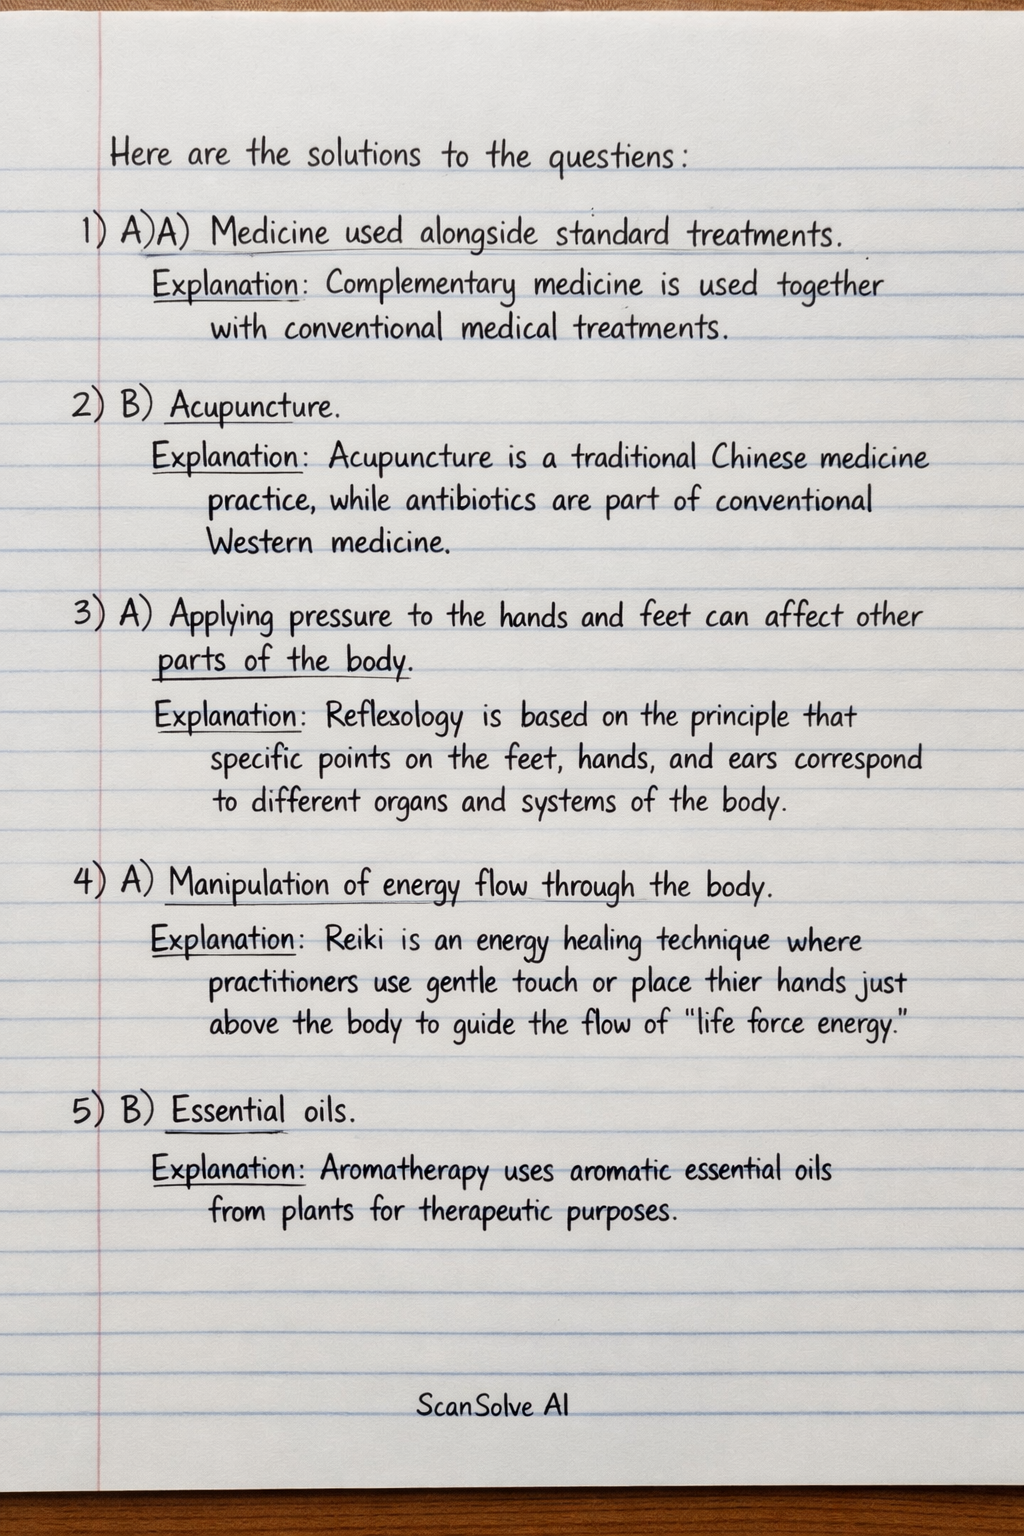 Here are the solutions to the questiens:
1) A)A) Medicine used alongside standard treatments.
Explanation: Complementary medicine is used together
with conventional medical treatments.
2) B) Acupuncture.
Explanation: Acupuncture is a traditional Chinese medicine
practice, while antibiotics are part of conventional
Western medicine.
3) A) Applying pressure to the hands and feet can affect other
parts of the body.
Explanation: Reflexology is based on the principle that
specific points on the feet, hands, and ears correspond
to different organs and systems of the body.
4) A) Manipulation of energy flow through the body.
Explanation: Reiki is an energy healing technique where
practitioners use gentle touch or place thier hands just
above the body to guide the flow of "life force energy."
5) B) Essential oils.
Explanation: Aromatherapy uses aromatic essential oils
from plants for therapeutic purposes.
ScanSolve AI